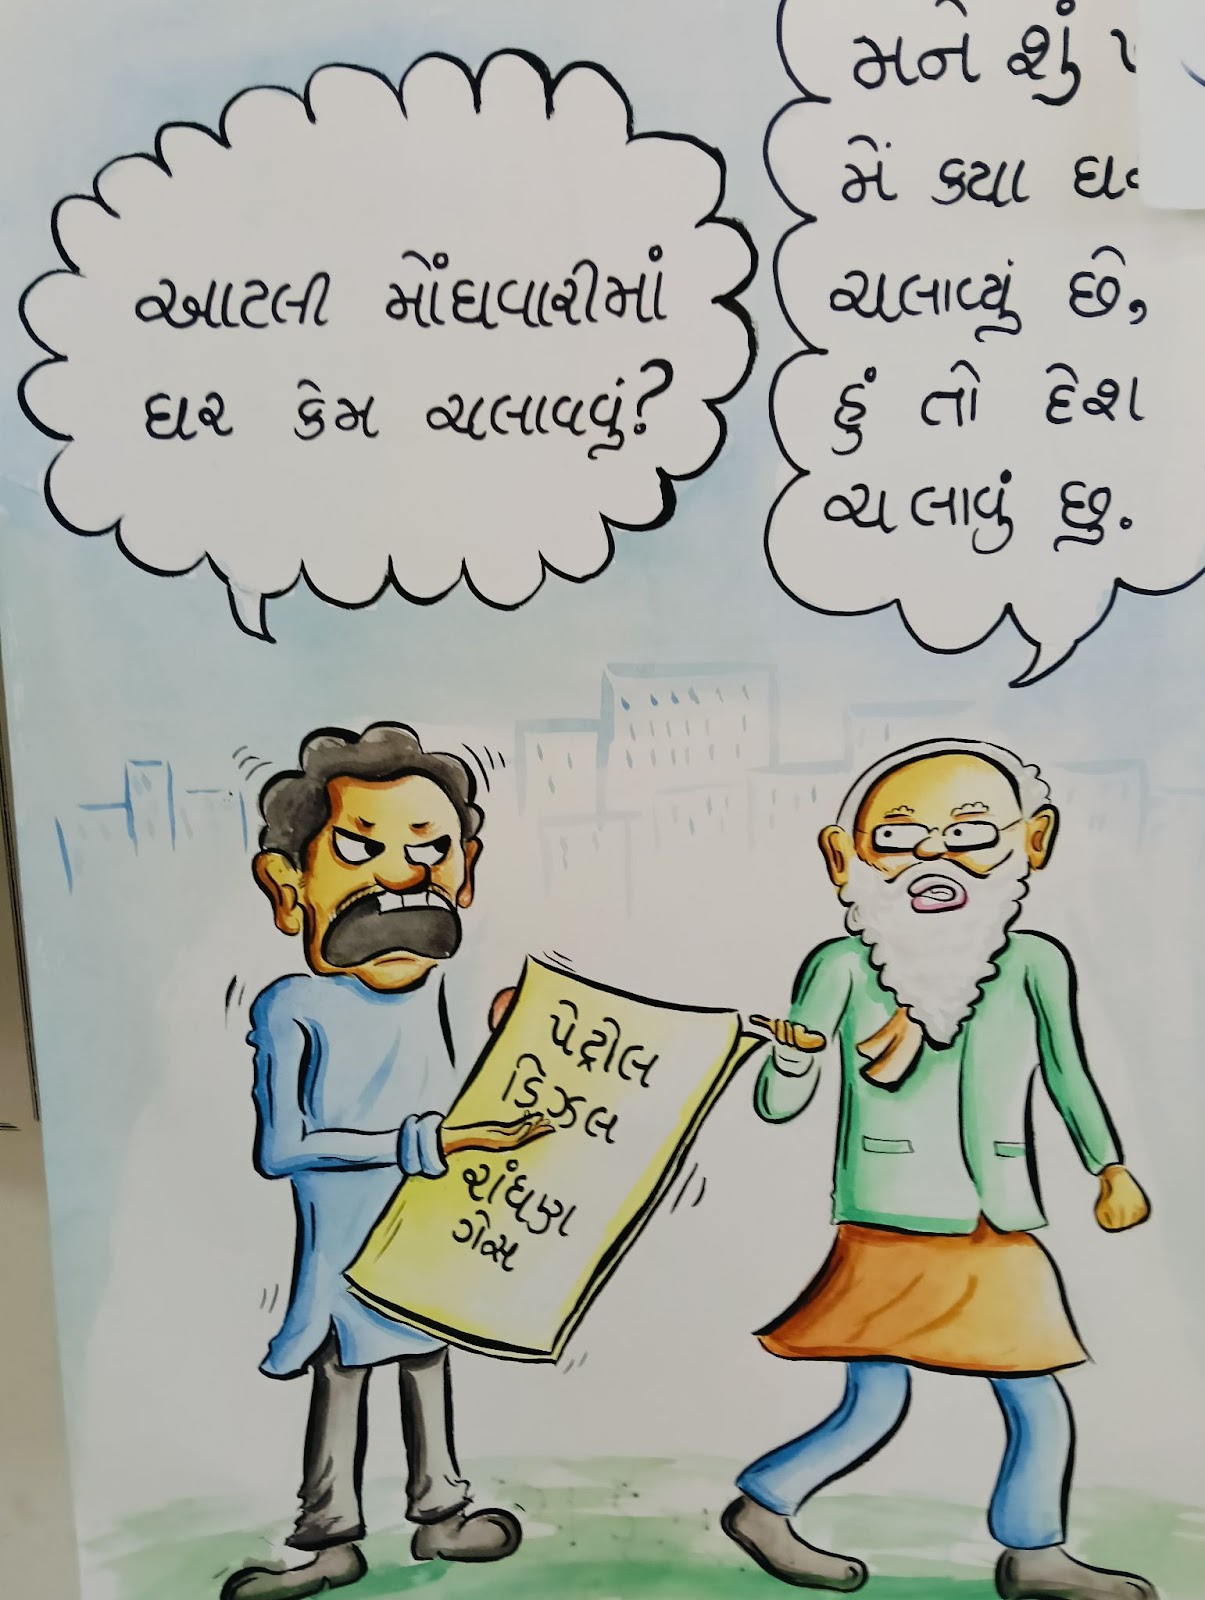 આટલી મોંઘવારીમાં
ઘર કેમ ચલાવવું?
મને શું
મેં ક્યા
ચલાવ્યું છે,
હું તો દેશ
ચલાવું છુ.
પેટ્રોલ
ડિઝલ
રાંધણ
ગેસ